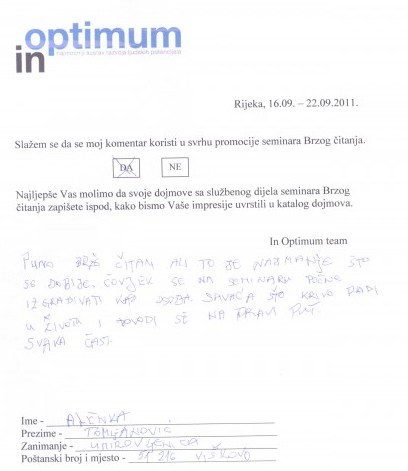 in optimum
Rijeka, 16.09. – 22.09.2011.
Slažem se da se moj komentar koristi u svrhu promocije seminara Brzog čitanja.
DA NE
Najljepše Vas molimo da svoje dojmove sa službenog dijela seminara Brzog
čitanja zapišete ispod, kako bismo Vaše impresije uvrstili u katalog dojmova.
In Optimum team
PUNO BRŽE ČITAM ALI TO JE NAJMANJE ŠTO
SE DOBIJE. ČOVJEK SE NA SEMINARU POČNE
IZGRAĐIVATI KAO OSOBA. SHVAĆA ŠTO KRIVO RADI
U ŽIVOTU I DOVODI SE NA PRAVI PUT
SVAKA ČAST.
Ime - ALENKA
Prezime - TOMLJANOVIĆ
Zanimanje - UMIROVLJENICA
Poštanski broj i mjesto - 51 216 VIŠKOVO